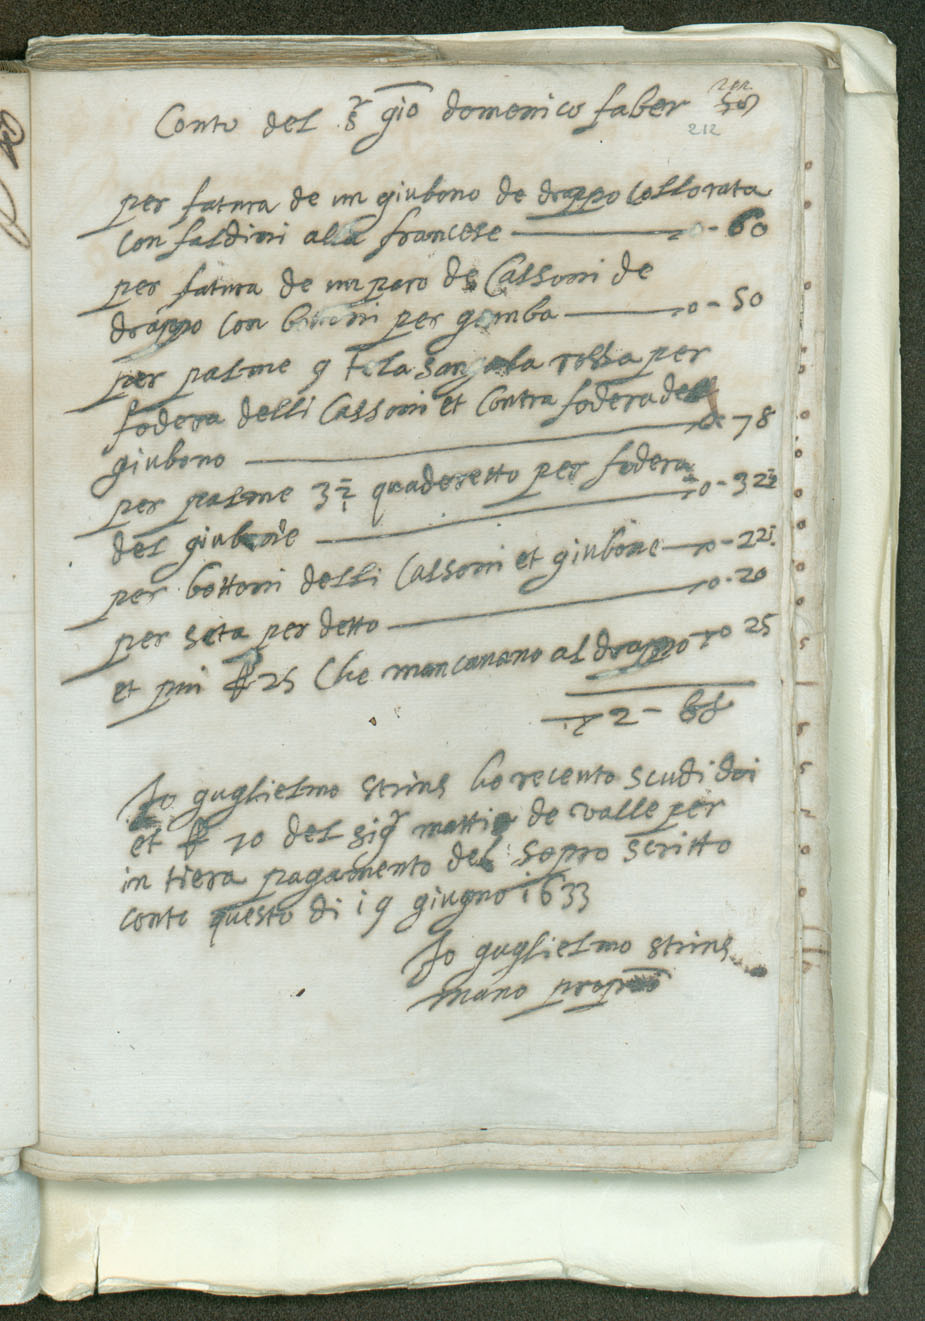 Conto del Sr gio domenico faber
212
per fatura de un giubono de drappo Collorata
con faldini alla francese — 0 - 60
per fatura de un paro de Calsoni de
drappo con per gamba — 0 - 50
per palme 9 tela sangala rossa per
fodera delli Calsoni et Contra fodera del
giubono — 78
per palme 3 1/2 quaderetto per fodera
del giubone — 0 - 32 1/2
per bottoni delli Calsoni et giubone — 0 - 22 1/2
per seta per detto — 0 - 20
et piu 25 Che mancavano al drappo — 0 25
2 - 68
Io guglielmo strins ho receuto scudi doi
et 70 del sigr mattia de valle per
intiera pagamento del sopro scritto
conto questo di 19 giugno 1633
Io guglielmo strins
mano propria